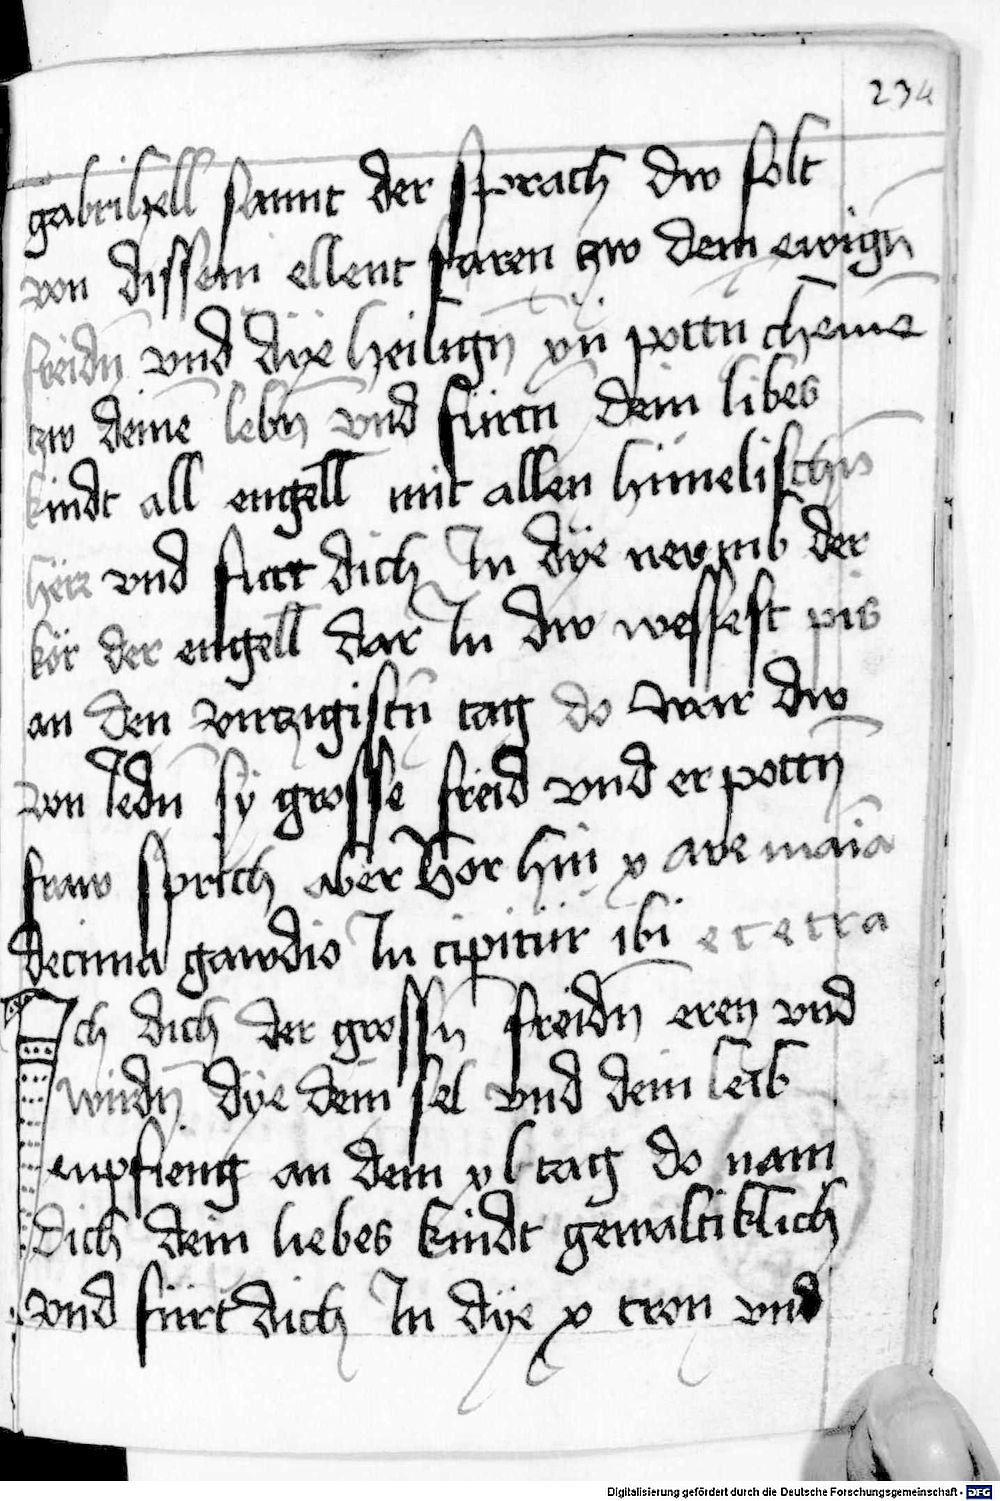 234
gabrihell sannt der sprach dw solt
von dissem ellent faren zw dem ewign̄
freidn̄ vnd dÿe heilign̄ xij pottn̄ chemē
zw deinē lebn̄ vnd fürtn̄ dein libes
kindt all engell mit allen himelischn̄
here vnd fürt dich In dÿe newmb der
kör der engell dar In dw wessest pis
an den virtzigistn̄ tag do war dw
von Iedn̄ sÿ grosse freid vnd er pottn̄
fraw sprich aber vor hin x ave maia
decima gawdio In cipitur ibi et etra
Ich dich der grossn̄ freidn̄ eren vnd
wirdn̄ dÿe dein sel vnd dein leib
enpfieng an dem xl tag do nam
Dich dein liebes kindt gewaltiklich
vnd fürt dich In dÿe x tron vnd
Digitalisierung gefördert durch die Deutsche Forschungsgemeinschaft - DFG